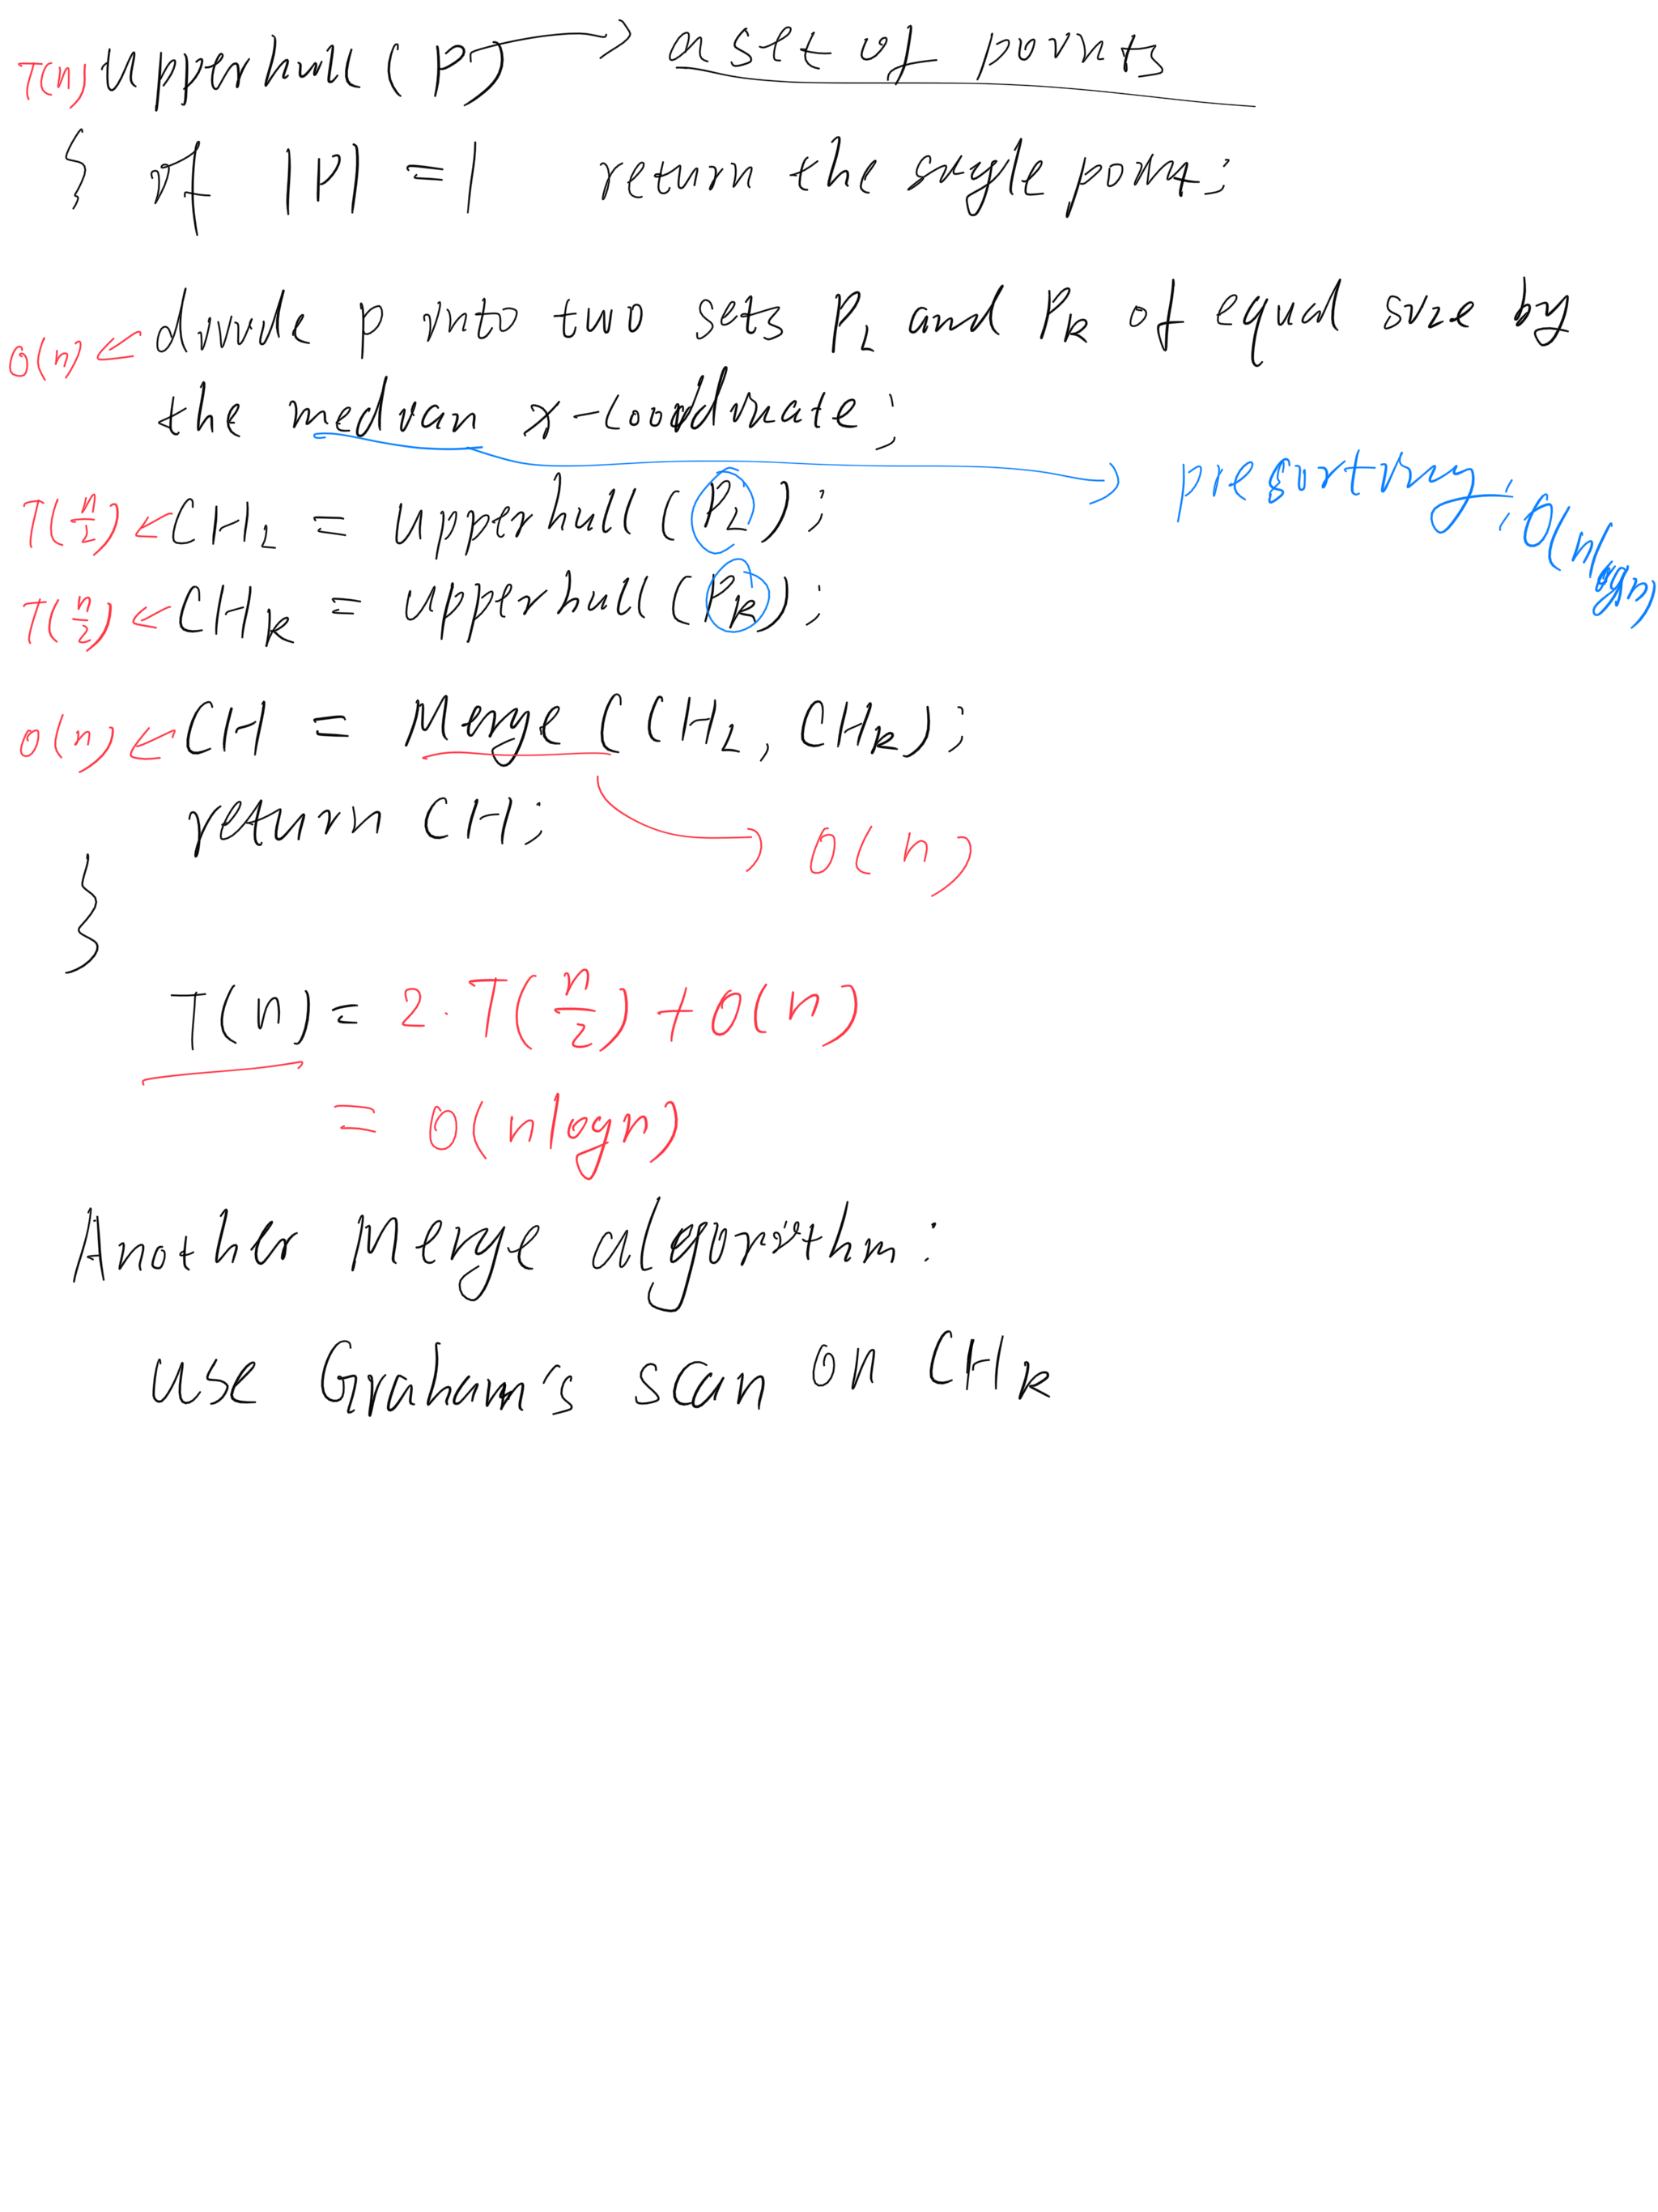 T(n) upperhull(P) → a set of points
{ if |P| = 1 return the single point;
O(n) ← divide P into two sets P_L and P_R of equal size by
the median x-coordinate;
→ presorting: O(n log n)
T(n/2) ← CH_L = upperhull(P_L);
T(n/2) ← CH_R = upperhull(P_R);
O(n) ← CH = Merge(CH_L, CH_R);
return CH;
→ O(n)
}
T(n) = 2·T(n/2) + O(n)
= O(n log n)
Another Merge algorithm:
use Graham's scan on CH_R